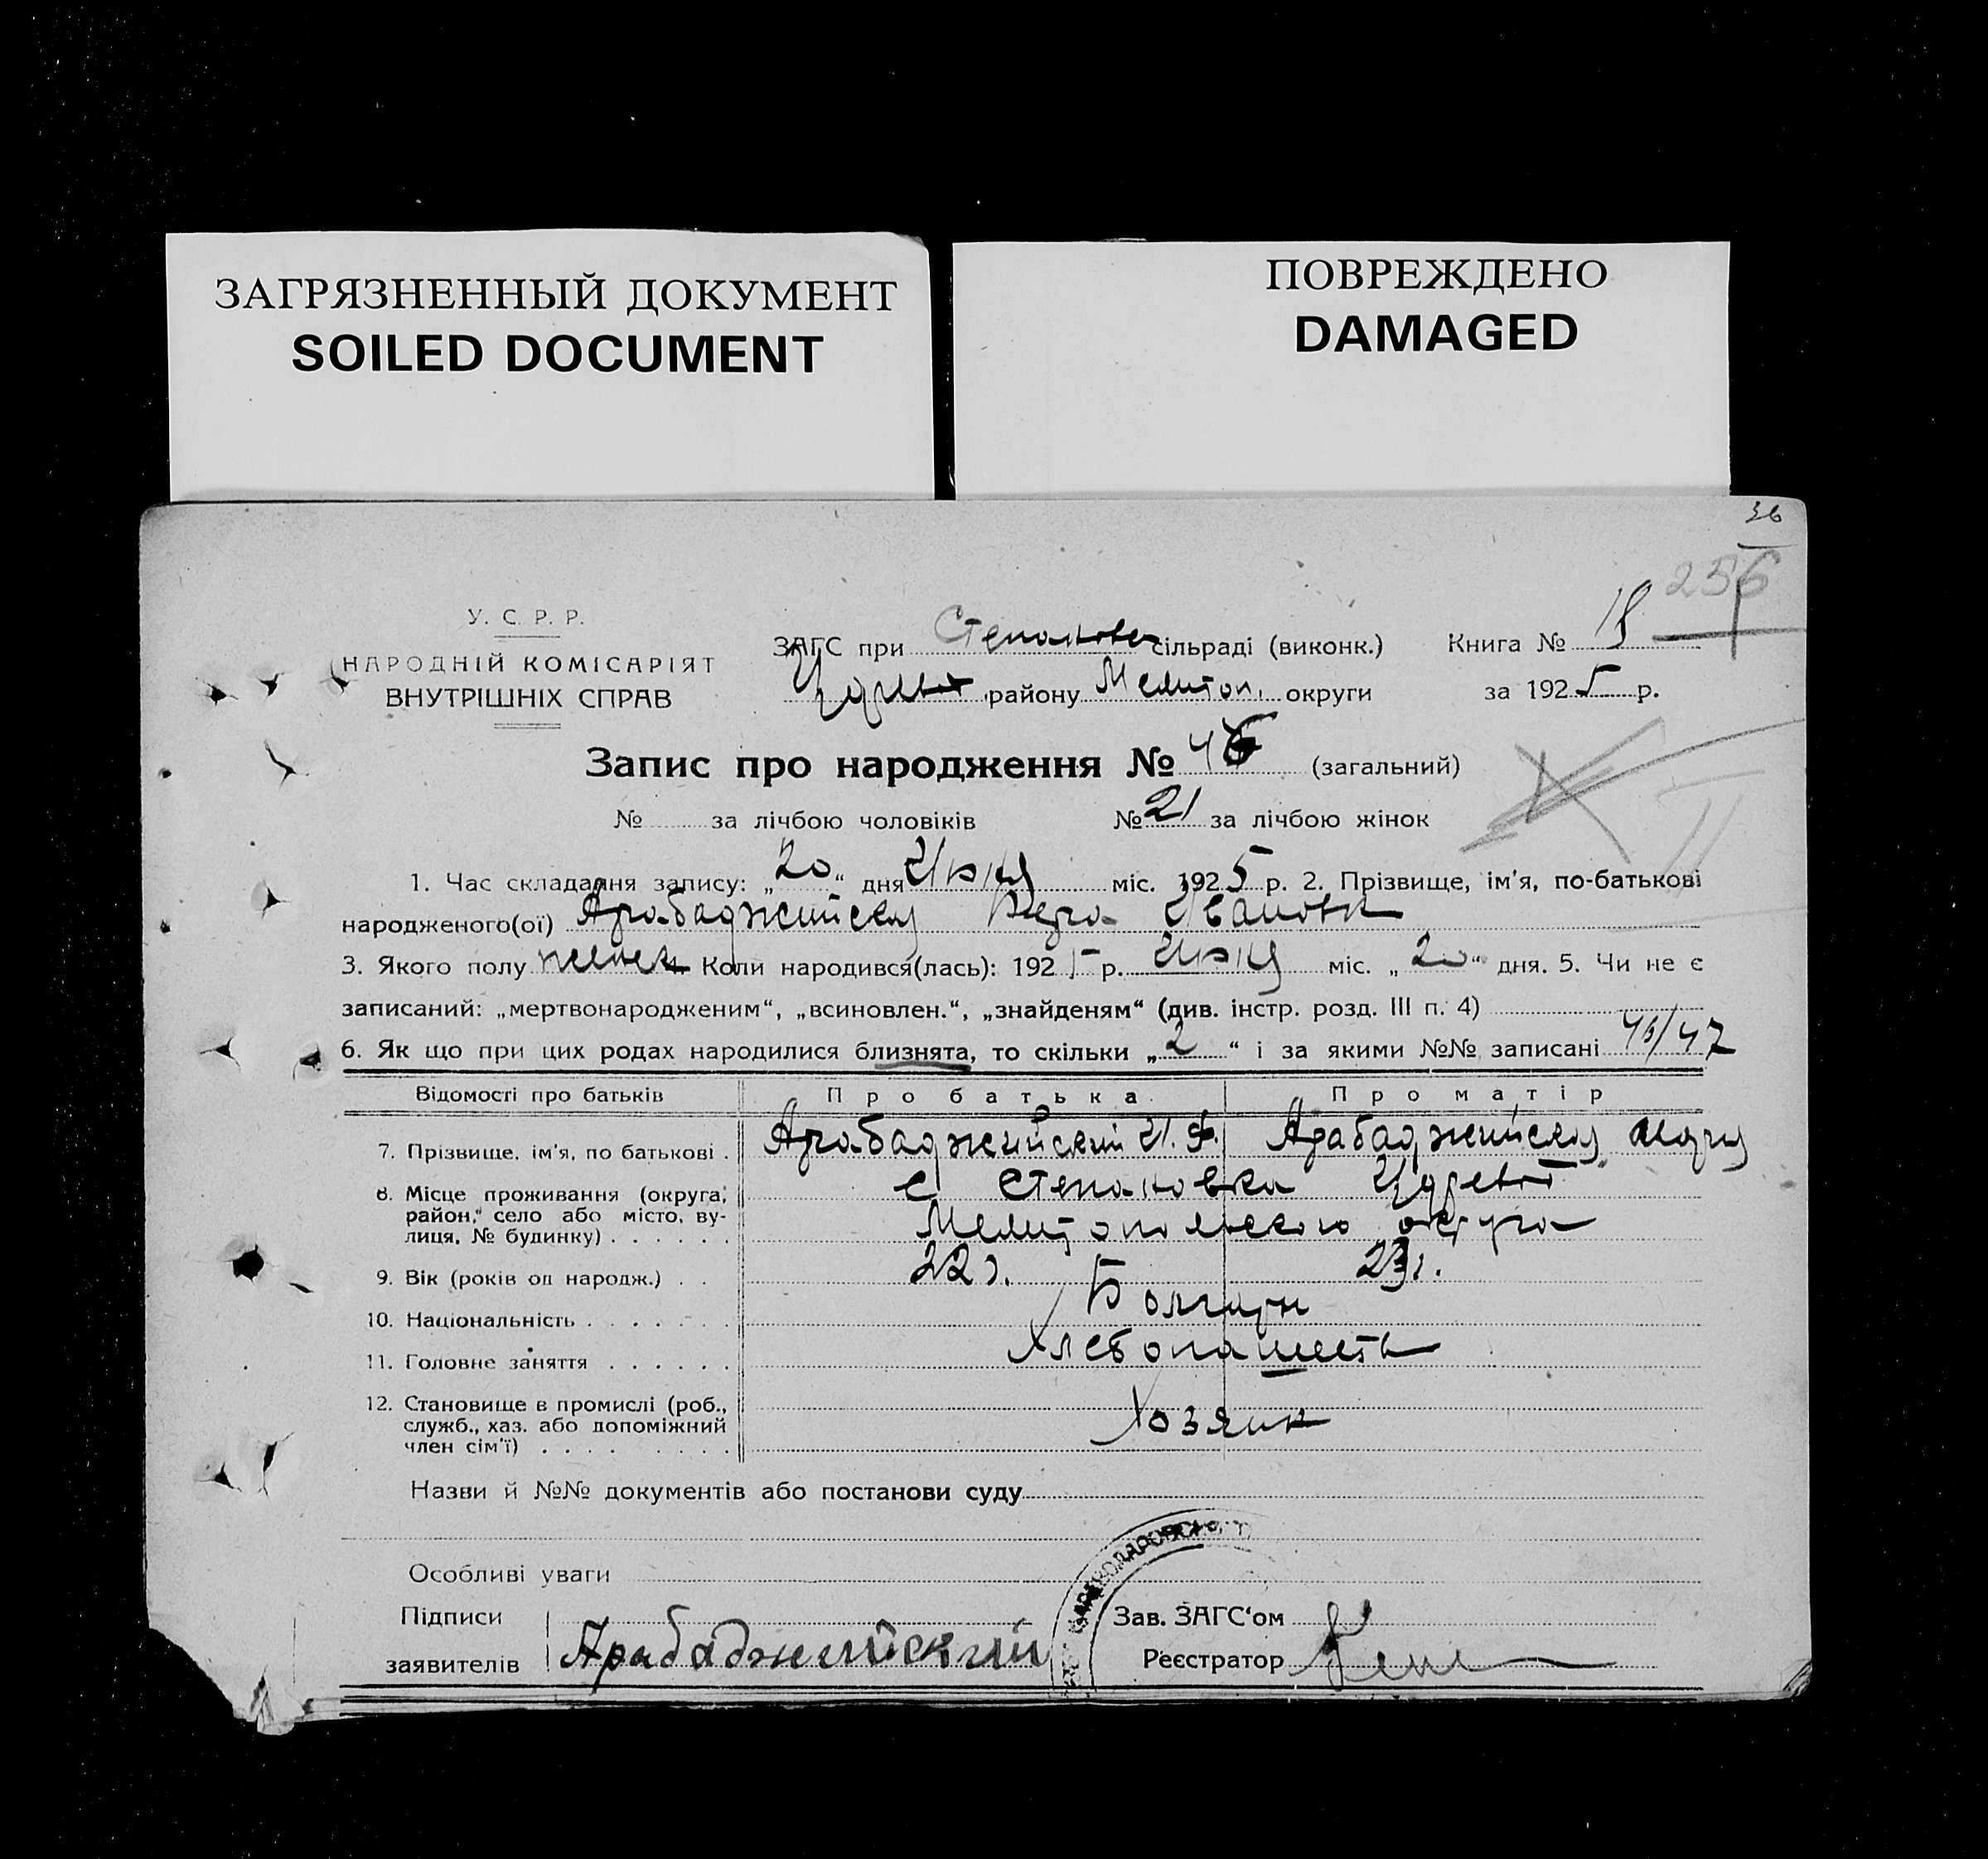 ЗАГРЯЗНЕННЫЙ ДОКУМЕНТ
SOILED DOCUMENT
ПОВРЕЖДЕНО
DAMAGED
36
256
У. С. Р. Р.
НАРОДНІЙ КОМІСАРІЯТ
ВНУТРІШНІХ СПРАВ
ЗАГС при Степановс сільраді (виконк.) Книга № 18
району Мелитоп. округи за 1925 р.
Запис про народження № 46 (загальний)
№ за лічбою чоловіків № 21 за лічбою жінок
1. Час складання запису: „20“ дня Июня міс. 1925 р. 2. Прізвище, ім'я, по-батькові
народженого(ої) Арабаджийская Вера Ивановн
3. Якого полу женск 4. Коли народився(лась): 1925 р. Июня міс. „20“ дня. 5. Чи не є
записаний: „мертвонародженим“, „всиновлен.“, „знайденям“ (див. інстр. розд. III п. 4)
6. Як що при цих родах народилися близнята, то скільки „2“ і за якими №№ записані 46/47
Відомості про батьків Про батька Про матір
7. Прізвище, ім'я, по батькові . Арабаджийский И. Ф. Арабаджийская Мария
8. Місце проживання (округа, район, село або місто, вулиця, № будинку) . . . . . . с Степановка Царево
Мелитопольского округа
9. Вік (років од народж.) . . 22 г. 23 г.
10. Національність . . . . . . . Болгары
11. Головне заняття . . . . . . Хлебопашеств
12. Становище в промислі (роб., служб., хаз. або допоміжний член сім'ї) . . . . . . . . . Хозяин
Назви й №№ документів або постанови суду
Особливі уваги
Підписи
заявителів Арабаджийский
Зав. ЗАГС'ом
Реєстратор